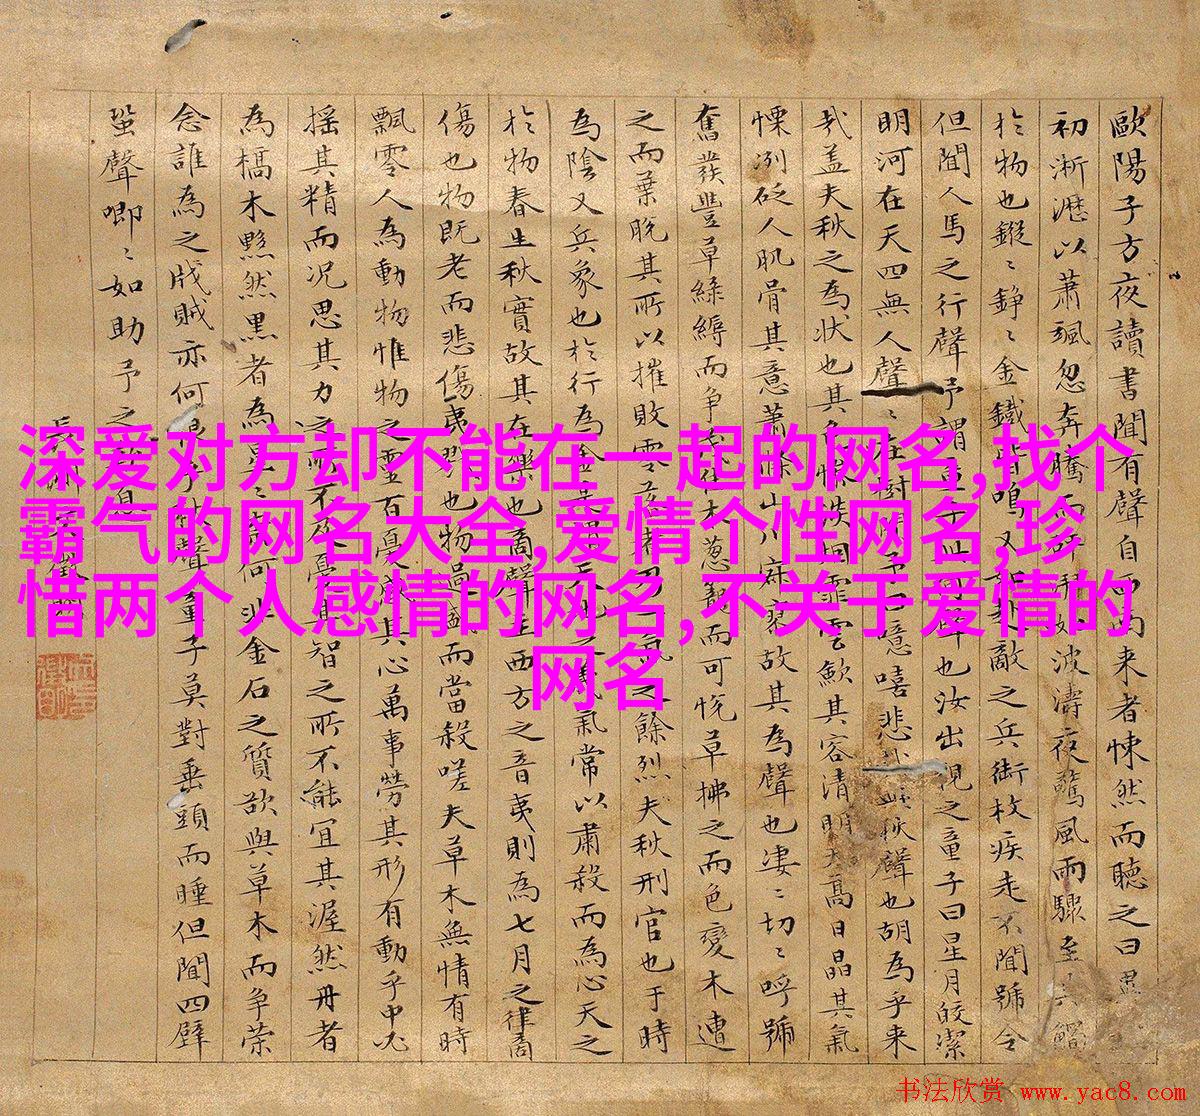 歐陽子方夜讀書聞有聲自西南來者悚然而聽之曰異
初淅瀝以蕭颯忽奔騰而砰湃如波濤夜驚風雨驟至其觸
於物也鏦〻錚〻金鐵皆鳴又如赴敵之兵銜枚疾走不聞號令
但聞人馬之行聲予謂童子此何聲也汝出視之童子曰星月皎潔
明河在天四無人聲〻在樹間予曰噫嘻悲哉此秋聲也胡為乎來
哉盖夫秋之為狀也其色慘淡烟霏雲歛其容清明天高日晶其氣
慄冽砭人肌骨其意蕭條山川寂寥故其為聲也凄〻切〻呼號
奮發豐草綠縟而争茂佳木葱蘢而可悅草拂之而色變木遭
之而葉脫其所以摧敗零落者乃一氣之餘烈夫秋刑官也于時
為陰又兵象也於行為金是謂天地之義氣常以肅殺而為心天之
於物春生秋實故其在樂也商聲主西方之音夷則為七月之律商
傷也物既老而悲傷夷戮也物過盛而當殺嗟夫草木無情有時
飄零人為動物惟物之靈百憂感其心萬事勞其形有動乎中必
摇其精而况思其力之所不及憂其智之所不能宜其渥然丹者
為槁木黟然黑者為星〻奈何非金石之質欲與草木而争荣
念誰為之戕賊亦何恨乎秋聲童子莫對垂頭而睡但聞四壁
蛩聲唧〻如助予之歎息
長洲
深爱对方却不能在一起的网名,找个
霸气的网名大全,爱情个性网名,珍
惜两个人感情的网名,不关于爱情的
网名
书法欣赏 www.yac8.com